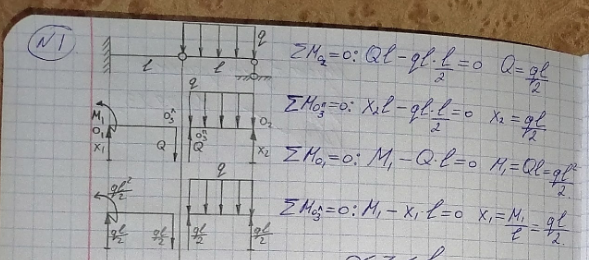 N1
q
l l
ΣM₂=0: Ql-ql·l/2=0 Q=ql/2
q
M₁ O₃ᴧ O₂
O₁ O₃ⁿ
X₁ Q Q X₂
ΣMO₃ⁿ=0: X₂l-ql·l/2=0 X₂=ql/2
ΣMO₁=0: M₁-Q·l=0 M₁=Ql=ql²/2
q
ql²/2
ql/2 ql/2 ql/2 ql/2
ΣMO₃ᴧ=0: M₁-X₁·l=0 X₁=M₁/l=ql/2.